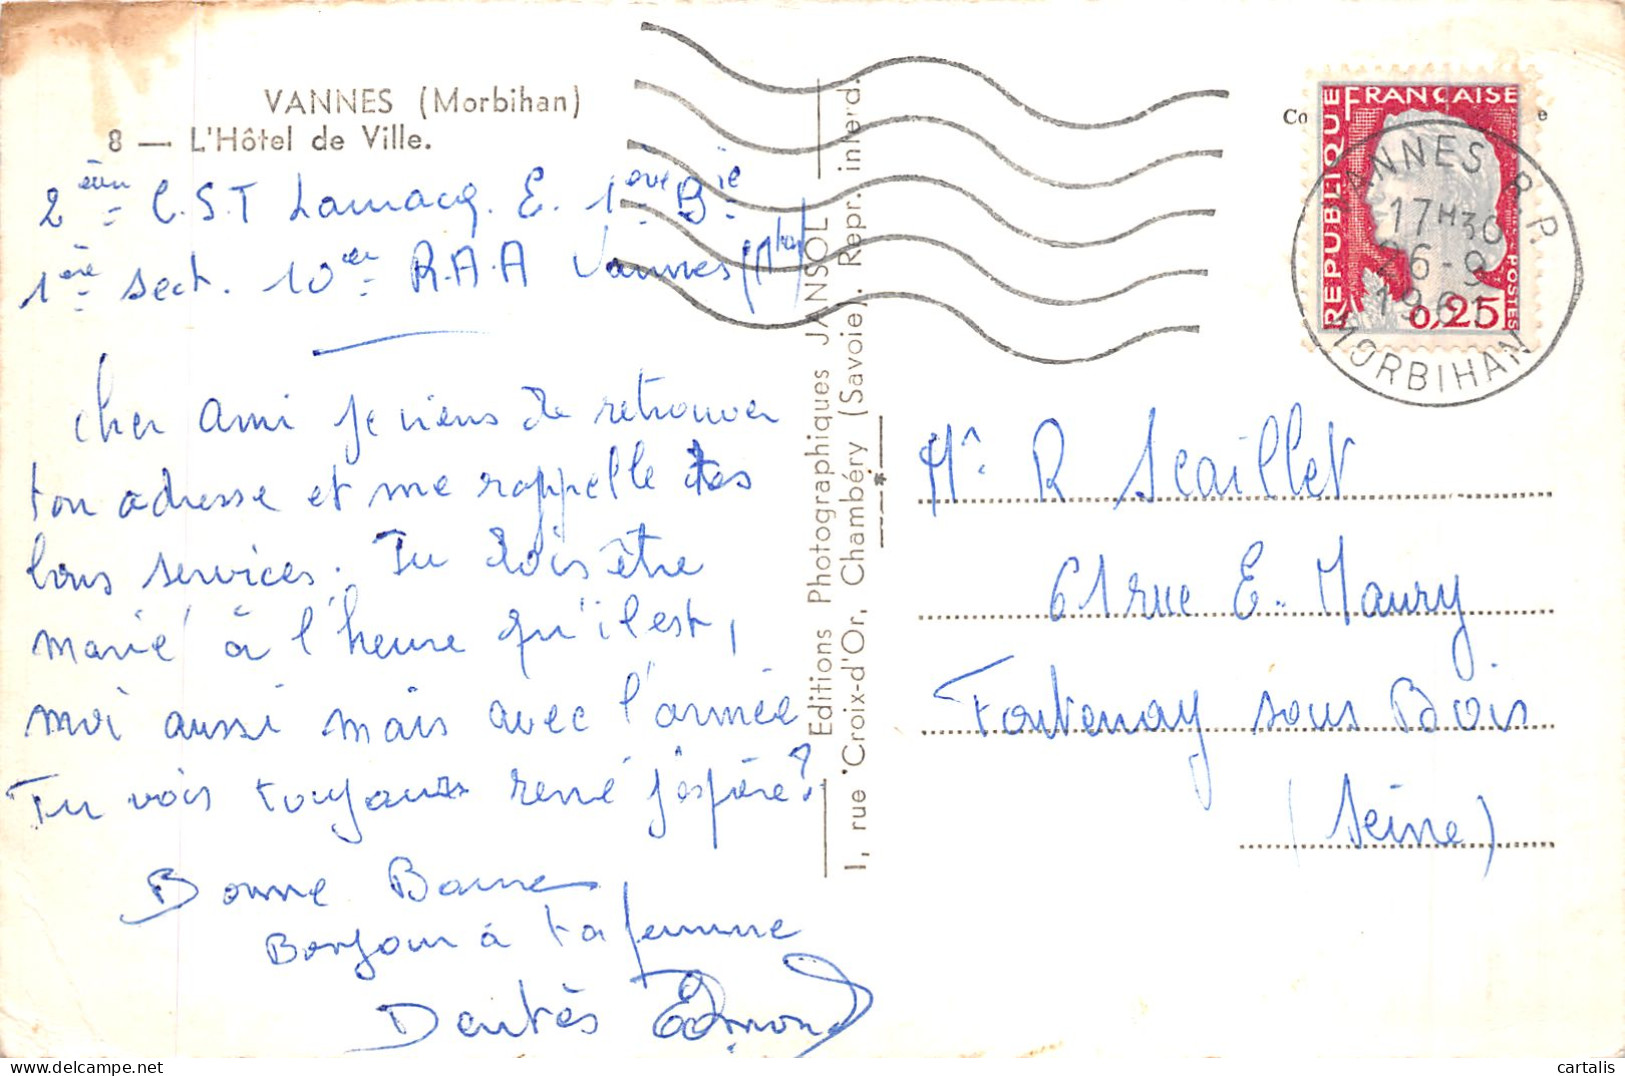 VANNES (Morbihan)
8 — L'Hôtel de Ville.
2ème C.S.T Lamacq. E. 1ère Bie
1ère sect. 10ème R.A.A Vannes
Cher Ami je viens de retrouver
ton adresse et me rappelle tes
bons services. Tu dois être
marié à l'heure qu'il est,
moi aussi mais avec l'armée
Tu vois toujours rené j'espère?
Bonne
Bonjour à ta femme
Edmond
Editions Photographiques JANSOL
1, rue Croix-d'Or, Chambéry (Savoie). Repr. interd.
REPUBLIQUE FRANÇAISE
POSTES
0,25
VANNES R.P.
17H30
26-9
1961
MORBIHAN
Co
e
Mr. R Scaillet
61 rue E. Maury
Fontenay sous Bois
(Seine)
cartalis